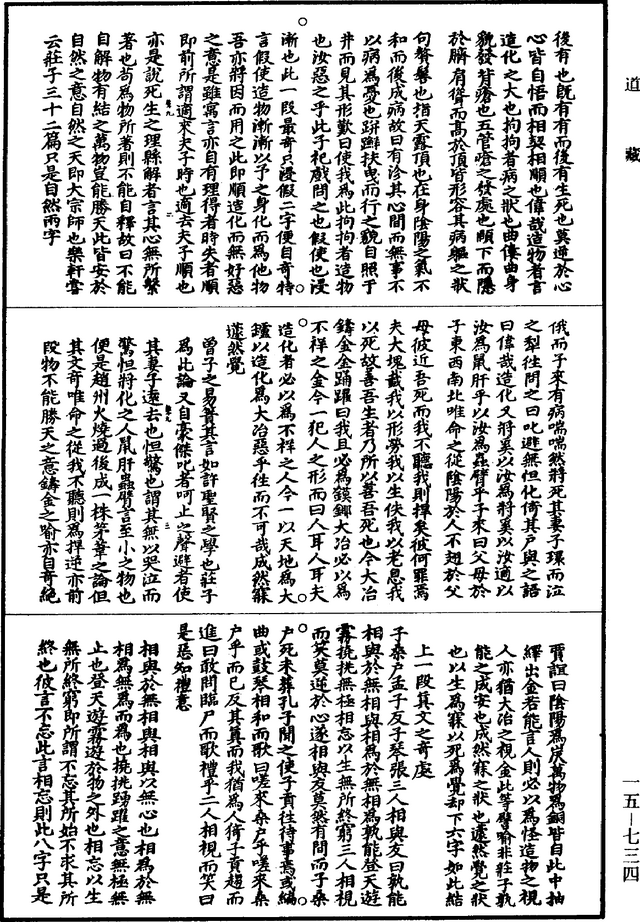 道藏
後有也既有有而後有生死也莫逆於心
心皆自悟而相契相順也偉哉造物者言
造化之大也拘拘者病之狀也曲僂曲身
貌發背瘡也五管瘡之發處也頤下而隱
於臍肩聳而高於頂皆形容其病軀之狀
句贅鬢也指天露頂也在身陰陽之氣不
和而後成病故曰有沴其心間而無事不
以病為憂也跰𨇤扶曳而行之貌自照于
井而見其形歎曰使我為此拘拘者造物
也汝惡之乎此子祀戲問之也假使也浸
漸也此一段最奇只浸假二字便自奇特
言假使造物漸漸以予之身化而為他物
吾亦將因而用之此即順造化而無好惡
之意是雖寓言亦自有理得者時失者順
即前所謂適來夫子時也適去夫子順也
亦是說死生之理縣解者言其心無所繫
著也苟為物所著則不能自釋故曰不能
自解物有結之萬物豈能勝天此皆安於
自然之意自然之天即大宗師也樂軒嘗
云莊子三十二篇只是自然兩字
俄而子來有病喘喘然將死其妻子環而泣
之犁往問之曰叱避無怛化倚其戶與之語
曰偉哉造化又將奚以汝為將奚以汝適以
汝為鼠肝乎以汝為蟲臂乎子來曰父母於
子東西南北唯命之從陰陽於人不翅於父
母彼近吾死而我不聽我則捍矣彼何罪焉
夫大塊載我以形勞我以生佚我以老息我
以死故善吾生者乃所以善吾死也今大冶
鑄金金踊躍曰我且必為鏌鋣大冶必以為
不祥之金今一犯人之形而曰人耳人耳夫
造化者必以為不祥之人今一以天地為大
鑪以造化為大冶惡乎往而不可哉成然寐
蘧然覺
曾子之易簀其言如許聖賢之學也莊子
為此論又自豪傑叱者呵止之聲避者使
其妻子遠去也怛驚也謂其無以哭泣而
驚怛將化之人鼠肝蟲臂言至小之物也
便是趙州火燒過後成一株茅葦之論但
其文奇唯命之從我不聽則為捍逆亦前
段物不能勝天之意鑄金之喻亦自奇絕
賈誼曰陰陽為炭萬物為銅皆自此中抽
繹出金若能言人則必以為怪造物之視
人亦猶大冶之視金此等譬喻非莊子孰
能之成安也成然寐之狀也蘧然覺之狀
也以生為寐以死為覺却下六字如此結
上一段真文之奇處
子桑戶孟子反子琴張三人相與友曰孰能
相與於無相與相為於無相為孰能登天遊
霧撓挑無極相忘以生無所終窮三人相視
而笑莫逆於心遂相與友莫然有間而子桑
戶死未葬孔子聞之使子貢往待事焉或編
曲或鼓琴相和而歌曰嗟來桑戶乎嗟來桑
戶乎而已反其真而我猶為人猗子貢趨而
進曰敢問臨尸而歌禮乎二人相視而笑曰
是惡知禮意
相與於無相與相與以無心也相為於無
相為無為而為也撓挑踴躍之意無極無
止也登天遊霧遊於物之外也相忘以生
無所終窮即所謂不忘其所始不求其所
終也彼言不忘此言相忘則此八字只是
一五—七三四